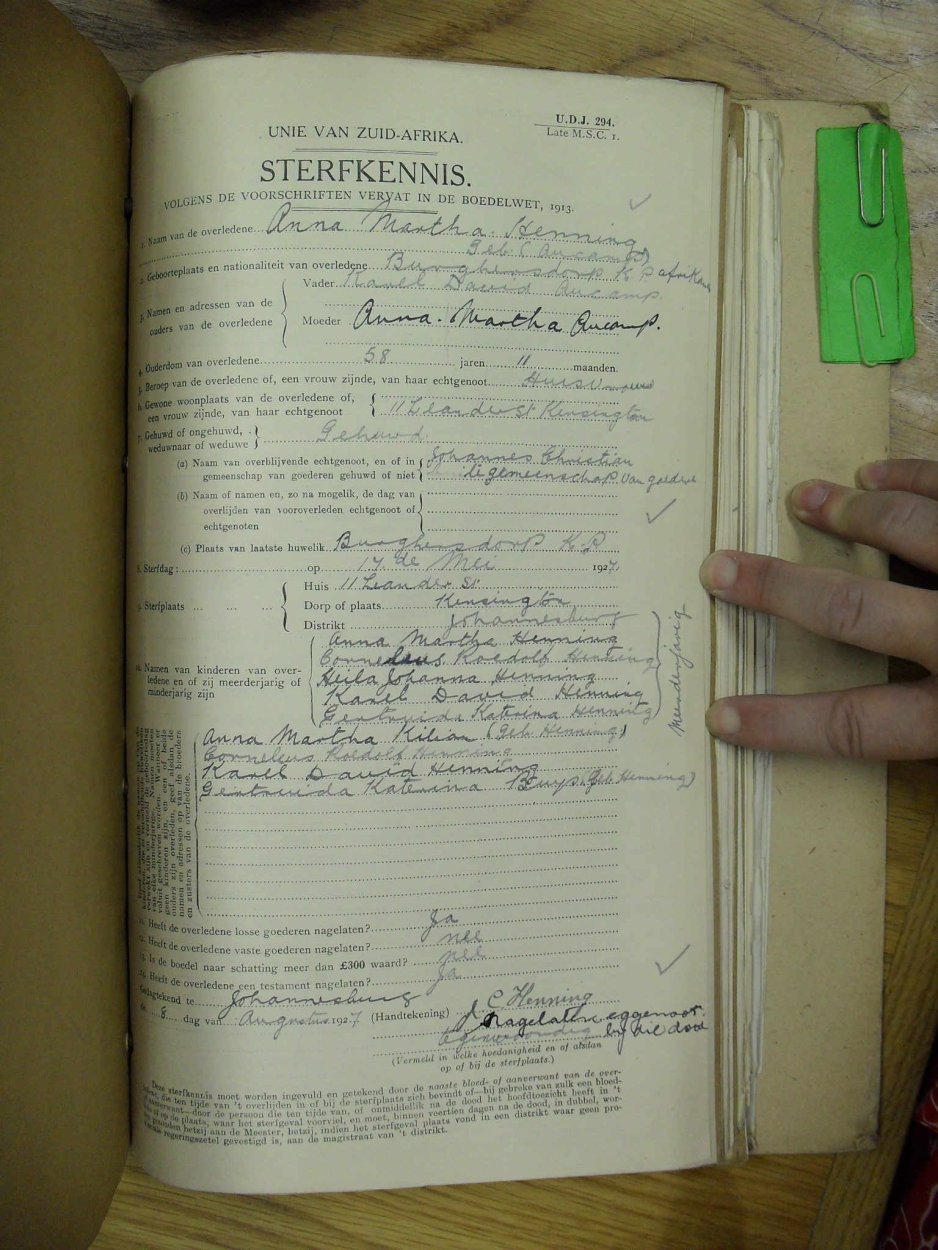 U.D.J. 294.
Late M.S.C. 1.
UNIE VAN ZUID-AFRIKA.
STERFKENNIS.
VOLGENS DE VOORSCHRIFTEN VERVAT IN DE BOEDELWET, 1913.
1. Naam van de overledene Anna Martha Henning
Geb (Aucamp)
2. Geboorteplaats en nationaliteit van overledene Burghersdorp K P Afrikaan
3. Namen en adressen van de ouders van de overledene
Vader Karel David Aucamp.
Moeder Anna Martha Aucamp.
4. Ouderdom van overledene 58 jaren 11 maanden.
5. Beroep van de overledene of, een vrouw zijnde, van haar echtgenoot Huisvrouw
6. Gewone woonplaats van de overledene of,
een vrouw zijnde, van haar echtgenoot 11 Leander St Kensington
7. Gehuwd of ongehuwd,
weduwnaar of weduwe Gehuwd
(a) Naam van overblijvende echtgenoot, en of in Johannes Christian
gemeenschap van goederen gehuwd of niet gemeenschap van goedere
(b) Naam of namen en, zo na mogelik, de dag van
overlijden van vooroverleden echtgenoot of
echtgenoten
(c) Plaats van laatste huwelik Burghersdorp K.P
8. Sterfdag: op 17 de Mei 1927.
9. Sterfplaats
Huis 11 Leander St
Dorp of plaats Kensington
Distrikt Johannesburg
10. Namen van kinderen van over-
ledene en of zij meerderjarig of
minderjarig zijn
Anna Martha Henning
Cornelius Roedolf Henning
Heila Johanna Henning
Karel David Henning
Gertruida Katrina Henning
Meerderjarig
Anna Martha Kilian (Geb Henning)
Cornelius Roedolf Henning
Karel David Henning
Gertruida Katerina Buys (Geb Henning)
11. Heeft de overledene losse goederen nagelaten? Ja
12. Heeft de overledene vaste goederen nagelaten? nee
13. Is de boedel naar schatting meer dan £300 waard? nee
14. Heeft de overledene een testament nagelaten? Ja
Gedagtekend te Johannesburg
de 8 dag van Augustus 1927
(Handtekening) J C Henning
Nagelaten eggenoot
by die dood
(Vermeld in welke hoedanigheid en of alsdan
op of bij de sterfplaats.)
Deze sterfkennis moet worden ingevuld en getekend door de naaste bloed- of aanverwant van de over-
ledene, die ten tijde van 't overlijden in of bij de sterfplaats zich bevindt of—bij gebreke van zulk een bloed-
of aanverwant—door de persoon die ten tijde van, of onmiddellik na de dood het hoofdtoezicht heeft in 't
huis of op de plaats, waar het sterfgeval voorviel, en moet, binnen veertien dagen na de dood, in dubbel, wor-
den gezonden hetzij aan de Meester, hetzij, indien het sterfgeval plaats vond in een distrikt waar geen pro-
vinciale regeringszetel gevestigd is, aan de magistraat van 't distrikt.